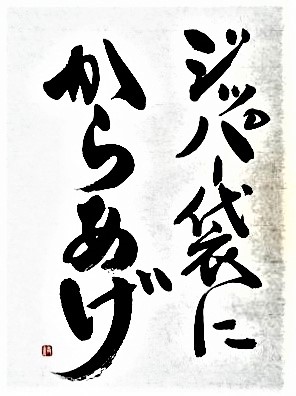 ジッパー袋に
からあげ